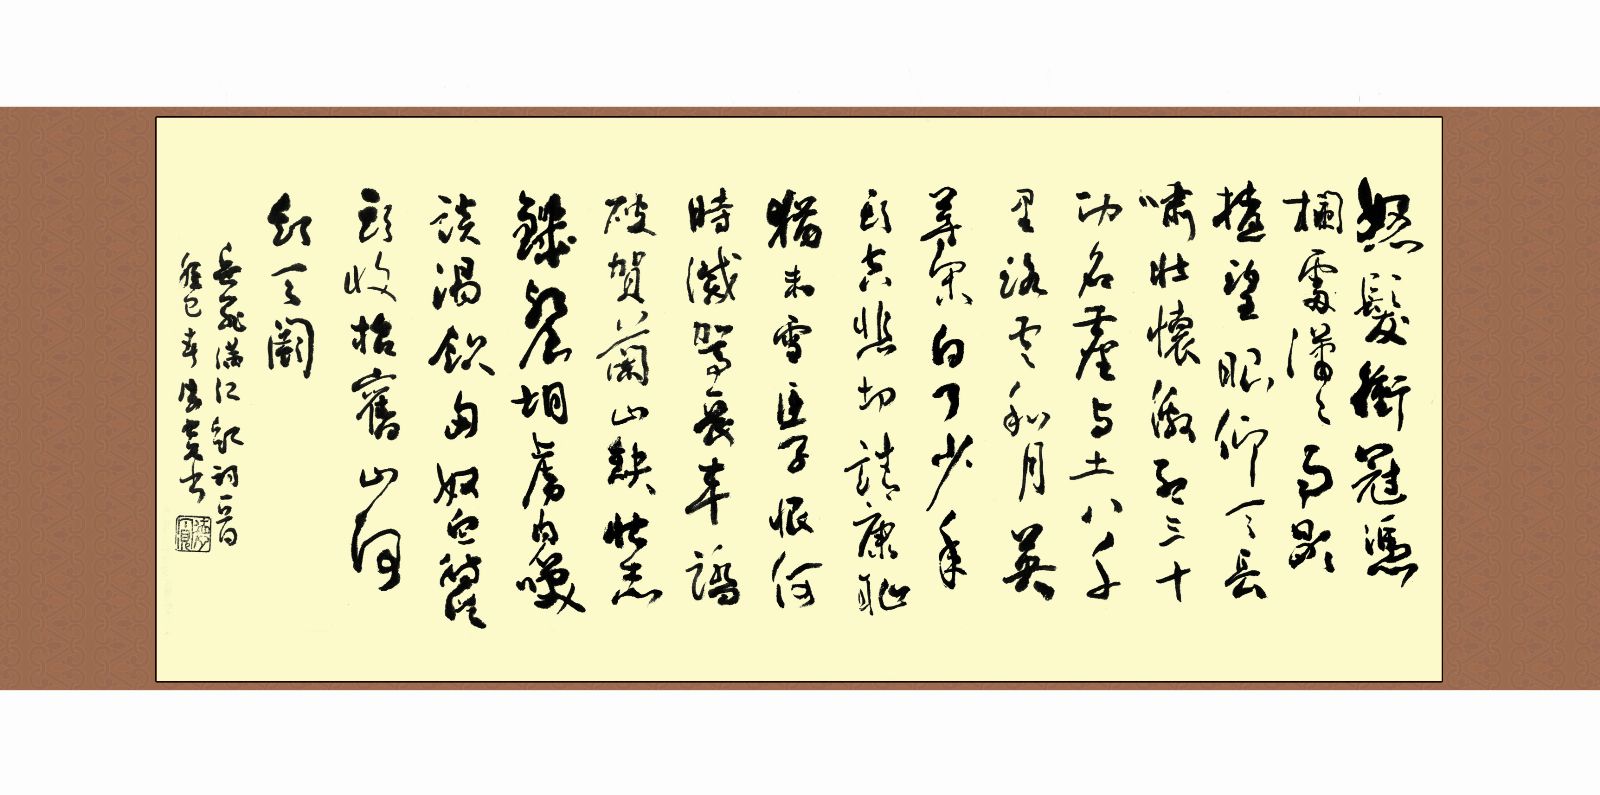 怒髮衝冠憑
欄處瀟瀟雨歇
擡望眼仰天長
嘯壯懷激烈三十
功名塵与土八千
里路雲和月莫
等閑白了少年
頭空悲切靖康恥
猶未雪臣子恨何
時滅駕長車踏
破賀蘭山缺壯志
飢餐胡虜肉笑
談渴飲匈奴血待從
頭收拾舊山河
朝天闕
岳飛滿江紅詞一首
癸巳春書